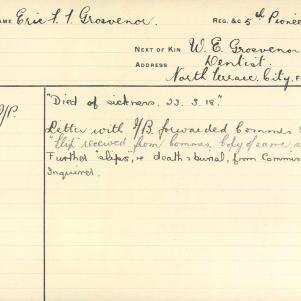 AME Eric F. F. Grosvenor. REG. &c 5th Pionee
NEXT OF KIN W. E. Grosvenor
Dentist.
ADDRESS North Terrace, City, F
"Died of sickness. 23.3.18."
Letter with forwarded Commss
"slip" received from Commss. Copy of same
Further "slips", re death & burial, from Commiss
Inquired.